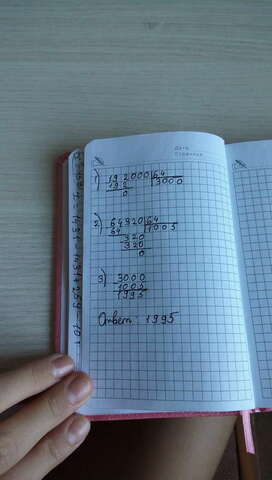 Дата
Страница
1) 192000 | 64
192 | 3000
0
2) 64320 | 64
64 | 1005
320
320
0
3) 3000
1005
1995
Ответ: 1995